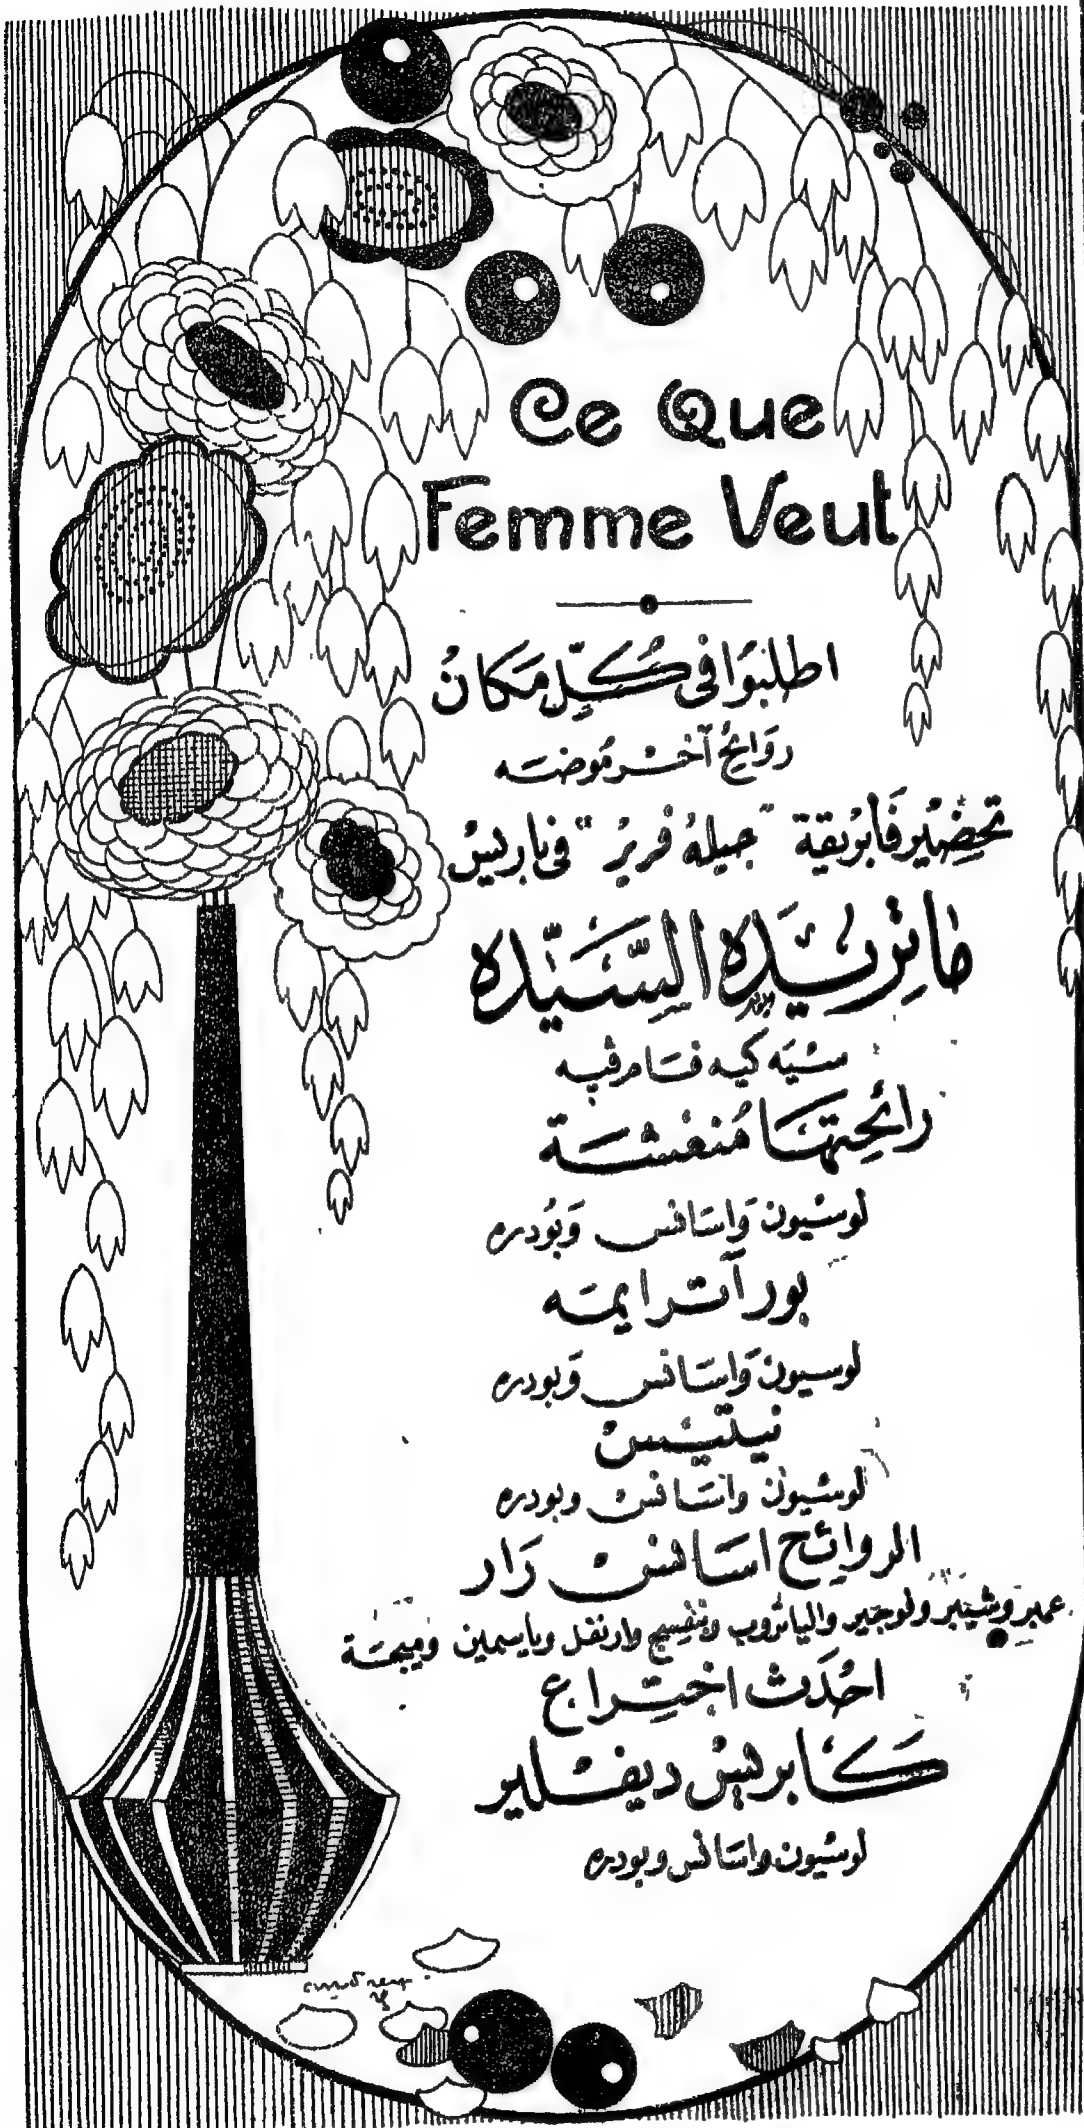 Ce Que
Femme Veut
اطلبوا فى كل مكان
روائح آخر موضه
تحضير فابريقة "جيله فرير" فى باريس
ماتريده السيده
سيه كيه فام فيه
رائحتها منعشة
لوسيون واسانس وبودره
بور آترايمه
لوسيون واسانس وبودره
لوسيون واسانس وبودره
الروائح اسانس رار
عمبر وشيبر ولوجير واليانروب وبنفسج وارنفل وياسمين
احدث اختراع
كابريس ديفلير
لوسيون واسانس وبودره